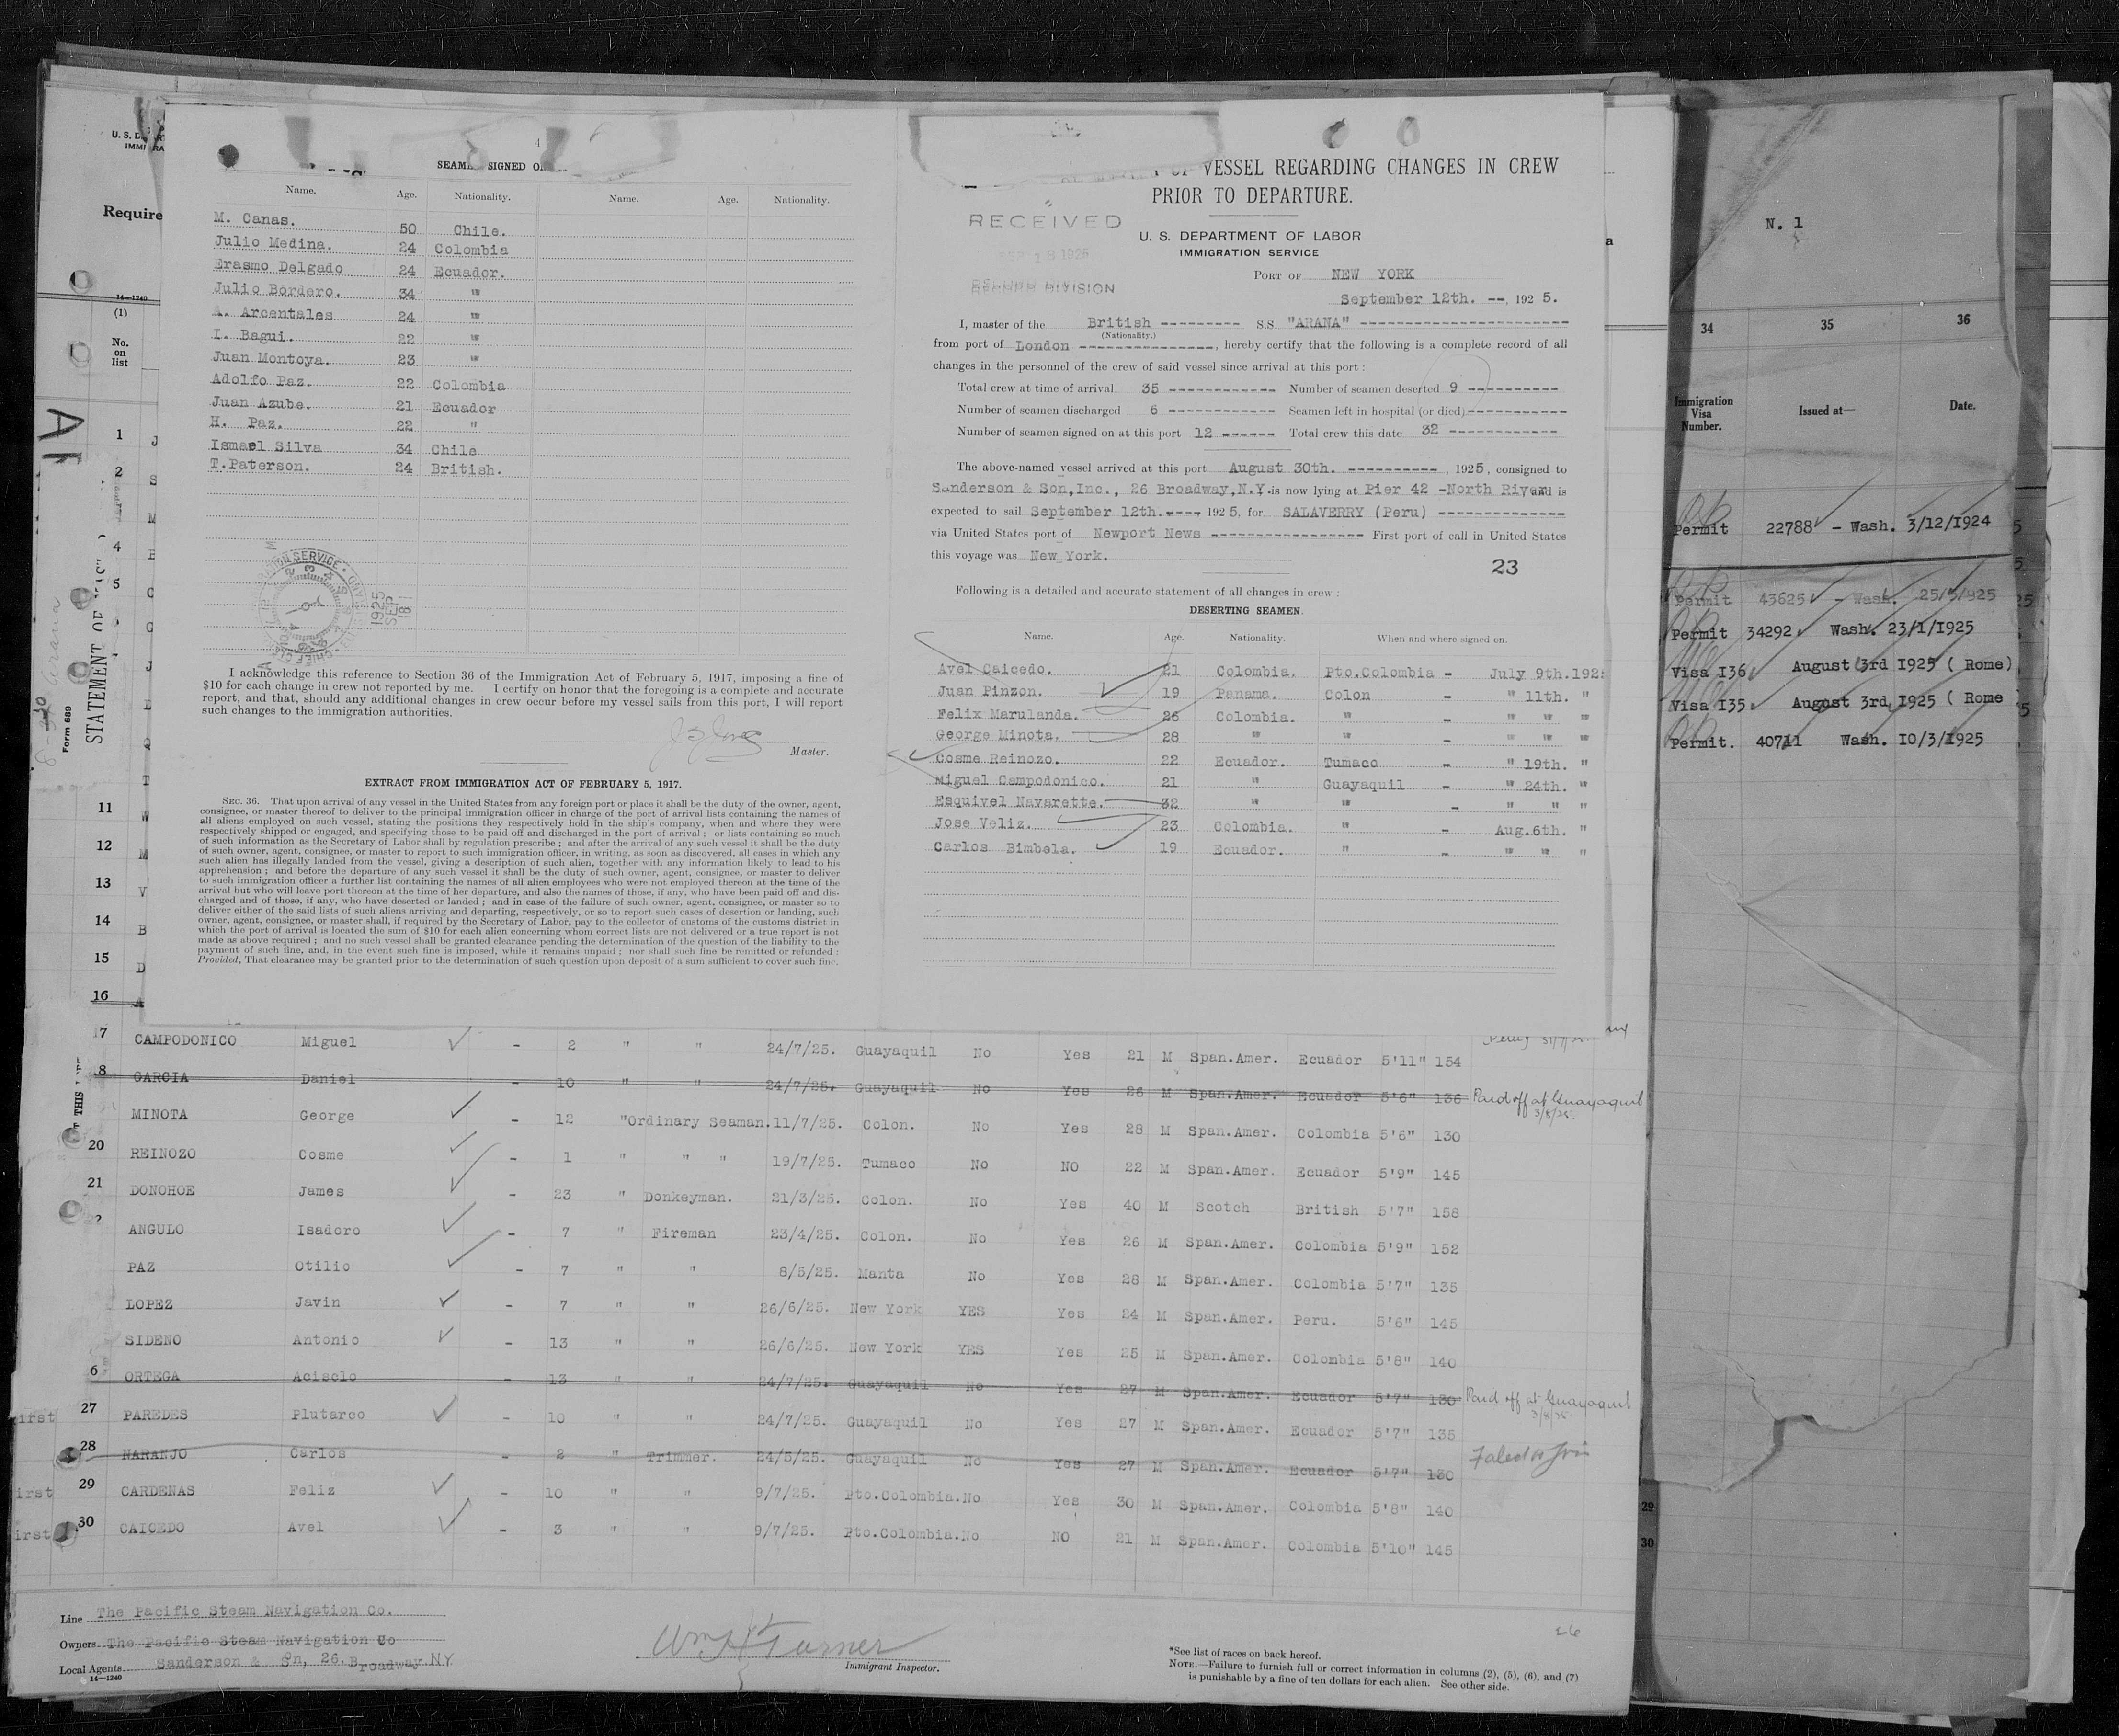 SEAME SIGNED O
Name. Age. Nationality. Name. Age. Nationality.
M. Canas. 50 Chile.
Julio Medina. 24 Colombia
Erasmo Delgado 24 Ecuador.
Julio Bordero. 34 "
A. Arcentales 24 "
I. Bagui. 22 "
Juan Montoya. 23 "
Adolfo Paz. 22 Colombia
Juan Azube. 21 Ecuador
H. Paz. 22 "
Ismael Silva 34 Chile
T.Paterson. 24 British.
1925
SEP
18
I acknowledge this reference to Section 36 of the Immigration Act of February 5, 1917, imposing a fine of
$10 for each change in crew not reported by me. I certify on honor that the foregoing is a complete and accurate
report, and that, should any additional changes in crew occur before my vessel sails from this port, I will report
such changes to the immigration authorities.
Master.
EXTRACT FROM IMMIGRATION ACT OF FEBRUARY 5, 1917.
SEC. 36. That upon arrival of any vessel in the United States from any foreign port or place it shall be the duty of the owner, agent,
consignee, or master thereof to deliver to the principal immigration officer in charge of the port of arrival lists containing the names of
all aliens employed on such vessel, stating the positions they respectively hold in the ship's company, when and where they were
respectively shipped or engaged, and specifying those to be paid off and discharged in the port of arrival; or lists containing so much
of such information as the Secretary of Labor shall by regulation prescribe; and after the arrival of any such vessel it shall be the duty
of such owner, agent, consignee, or master to report to such immigration officer, in writing, as soon as discovered, all cases in which any
such alien has illegally landed from the vessel, giving a description of such alien, together with any information likely to lead to his
apprehension; and before the departure of any such vessel it shall be the duty of such owner, agent, consignee, or master to deliver
to such immigration officer a further list containing the names of all alien employees who were not employed thereon at the time of the
arrival but who will leave port thereon at the time of her departure, and also the names of those, if any, who have been paid off and dis-
charged and of those, if any, who have deserted or landed; and in case of the failure of such owner, agent, consignee, or master so to
deliver either of the said lists of such aliens arriving and departing, respectively, or so to report such cases of desertion or landing, such
owner, agent, consignee, or master shall, if required by the Secretary of Labor, pay to the collector of customs of the customs district in
which the port of arrival is located the sum of $10 for each alien concerning whom correct lists are not delivered or a true report is not
made as above required; and no such vessel shall be granted clearance pending the determination of the question of the liability to the
payment of such fine, and, in the event such fine is imposed, while it remains unpaid; nor shall such fine be remitted or refunded:
Provided, That clearance may be granted prior to the determination of such question upon deposit of a sum sufficient to cover such fine.
OF VESSEL REGARDING CHANGES IN CREW
PRIOR TO DEPARTURE.
RECEIVED
SEP 18 1925
DIVISION
U. S. DEPARTMENT OF LABOR
IMMIGRATION SERVICE
PORT OF NEW YORK
September 12th. --, 192 5.
I, master of the British --------- S.S. "ARANA" -----------------------
(Nationality.)
from port of London ---------------, hereby certify that the following is a complete record of all
changes in the personnel of the crew of said vessel since arrival at this port:
Total crew at time of arrival 35 ------------ Number of seamen deserted 9 ----------
Number of seamen discharged 6 ------------ Seamen left in hospital (or died)-----------
Number of seamen signed on at this port 12 ------ Total crew this date 32 ------------
The above-named vessel arrived at this port August 30th. ----------, 1925, consigned to
Sanderson & Son,Inc., 26 Broadway,N.Y. is now lying at Pier 42 -North River and is
expected to sail September 12th.----, 192 5, for SALAVERRY (Peru) --------------
via United States port of Newport News ----------------- First port of call in United States
this voyage was New York.
23
Following is a detailed and accurate statement of all changes in crew:
DESERTING SEAMEN.
Name. Age. Nationality. When and where signed on.
Avel Caicedo. 21 Colombia. Pto.Colombia - July 9th.192
Juan Pinzon. 19 Panama. Colon - " 11th. "
Felix Marulanda. 26 Colombia. " - " " "
George Minota. 28 " " - " " "
Cosme Reinozo. 22 Ecuador. Tumaco - " 19th. "
Miguel Campodonico. 21 " Guayaquil - " 24th. "
Esquivel Navarette. 32 " " - " " "
Jose Veliz. 23 Colombia. " - Aug.6th. "
Carlos Bimbela. 19 Ecuador. " - " " "
U. S. D
IMMI RA
Require
14-1240
(1)
No.
on
list
STATEMENT OF
Form 689
1 J
2 S
M
4 E
5 C
G
J
11 W
12 M
13 V
14 B
15 D
16
7 CAMPODONICO Miguel - 2 " " 24/7/25. Guayaquil No Yes 21 M Span.Amer. Ecuador 5'11" 154
8 GARCIA Daniel - 10 " " 24/7/25. Guayaquil No Yes 26 M Span.Amer. Ecuador 5'6" 136 Paid off at Guayaquil
3/8/25.
MINOTA George - 12 "Ordinary Seaman. 11/7/25. Colon. No Yes 28 M Span.Amer. Colombia 5'6" 130
20 REINOZO Cosme - 1 " " " 19/7/25. Tumaco No NO 22 M Span.Amer. Ecuador 5'9" 145
21 DONOHOE James - 23 " Donkeyman. 21/3/25. Colon. No Yes 40 M Scotch British 5'7" 158
2 ANGULO Isadoro - 7 " Fireman 23/4/25. Colon. No Yes 26 M Span.Amer. Colombia 5'9" 152
PAZ Otilio - 7 " " 8/5/25. Manta No Yes 28 M Span.Amer. Colombia 5'7" 135
LOPEZ Javin - 7 " " 26/6/25. New York YES Yes 24 M Span.Amer. Peru. 5'6" 145
SIDENO Antonio - 13 " " 26/6/25. New York YES Yes 25 M Span.Amer. Colombia 5'8" 140
6 ORTEGA Acisclo - 13 " " 24/7/25. Guayaquil No Yes 27 M Span.Amer. Ecuador 5'7" 130 Paid off at Guayaquil
3/8/25
irst 27 PAREDES Plutarco - 10 " " 24/7/25. Guayaquil No Yes 27 M Span.Amer. Ecuador 5'7" 135
28 NARANJO Carlos - 2 " Trimmer. 24/5/25. Guayaquil No Yes 27 M Span.Amer. Ecuador 5'7" 130 Failed to Join
irst 29 CARDENAS Feliz - 10 " " 9/7/25. Pto.Colombia. No Yes 30 M Span.Amer. Colombia 5'8" 140
irst 30 CAICEDO Avel - 3 " " 9/7/25. Pto.Colombia. No NO 21 M Span.Amer. Colombia 5'10" 145
Line The Pacific Steam Navigation Co.
Owners The Pacific Steam Navigation Co
Local Agents Sanderson & Son, 26, Broadway NY
14-1240
Wm H Turner
Immigrant Inspector.
26
*See list of races on back hereof.
NOTE.—Failure to furnish full or correct information in columns (2), (5), (6), and (7)
is punishable by a fine of ten dollars for each alien. See other side.
N. 1
34 35 36
Immigration
Visa
Number.
Issued at— Date.
Permit 22788 - Wash. 3/12/1924
Permit 43625 - Wash. 25/5/925
Permit 34292 Wash. 23/1/1925
Visa I36 August 3rd 1925 ( Rome)
Visa I35 August 3rd 1925 ( Rome
Permit. 40711 Wash. 10/3/1925
29
30